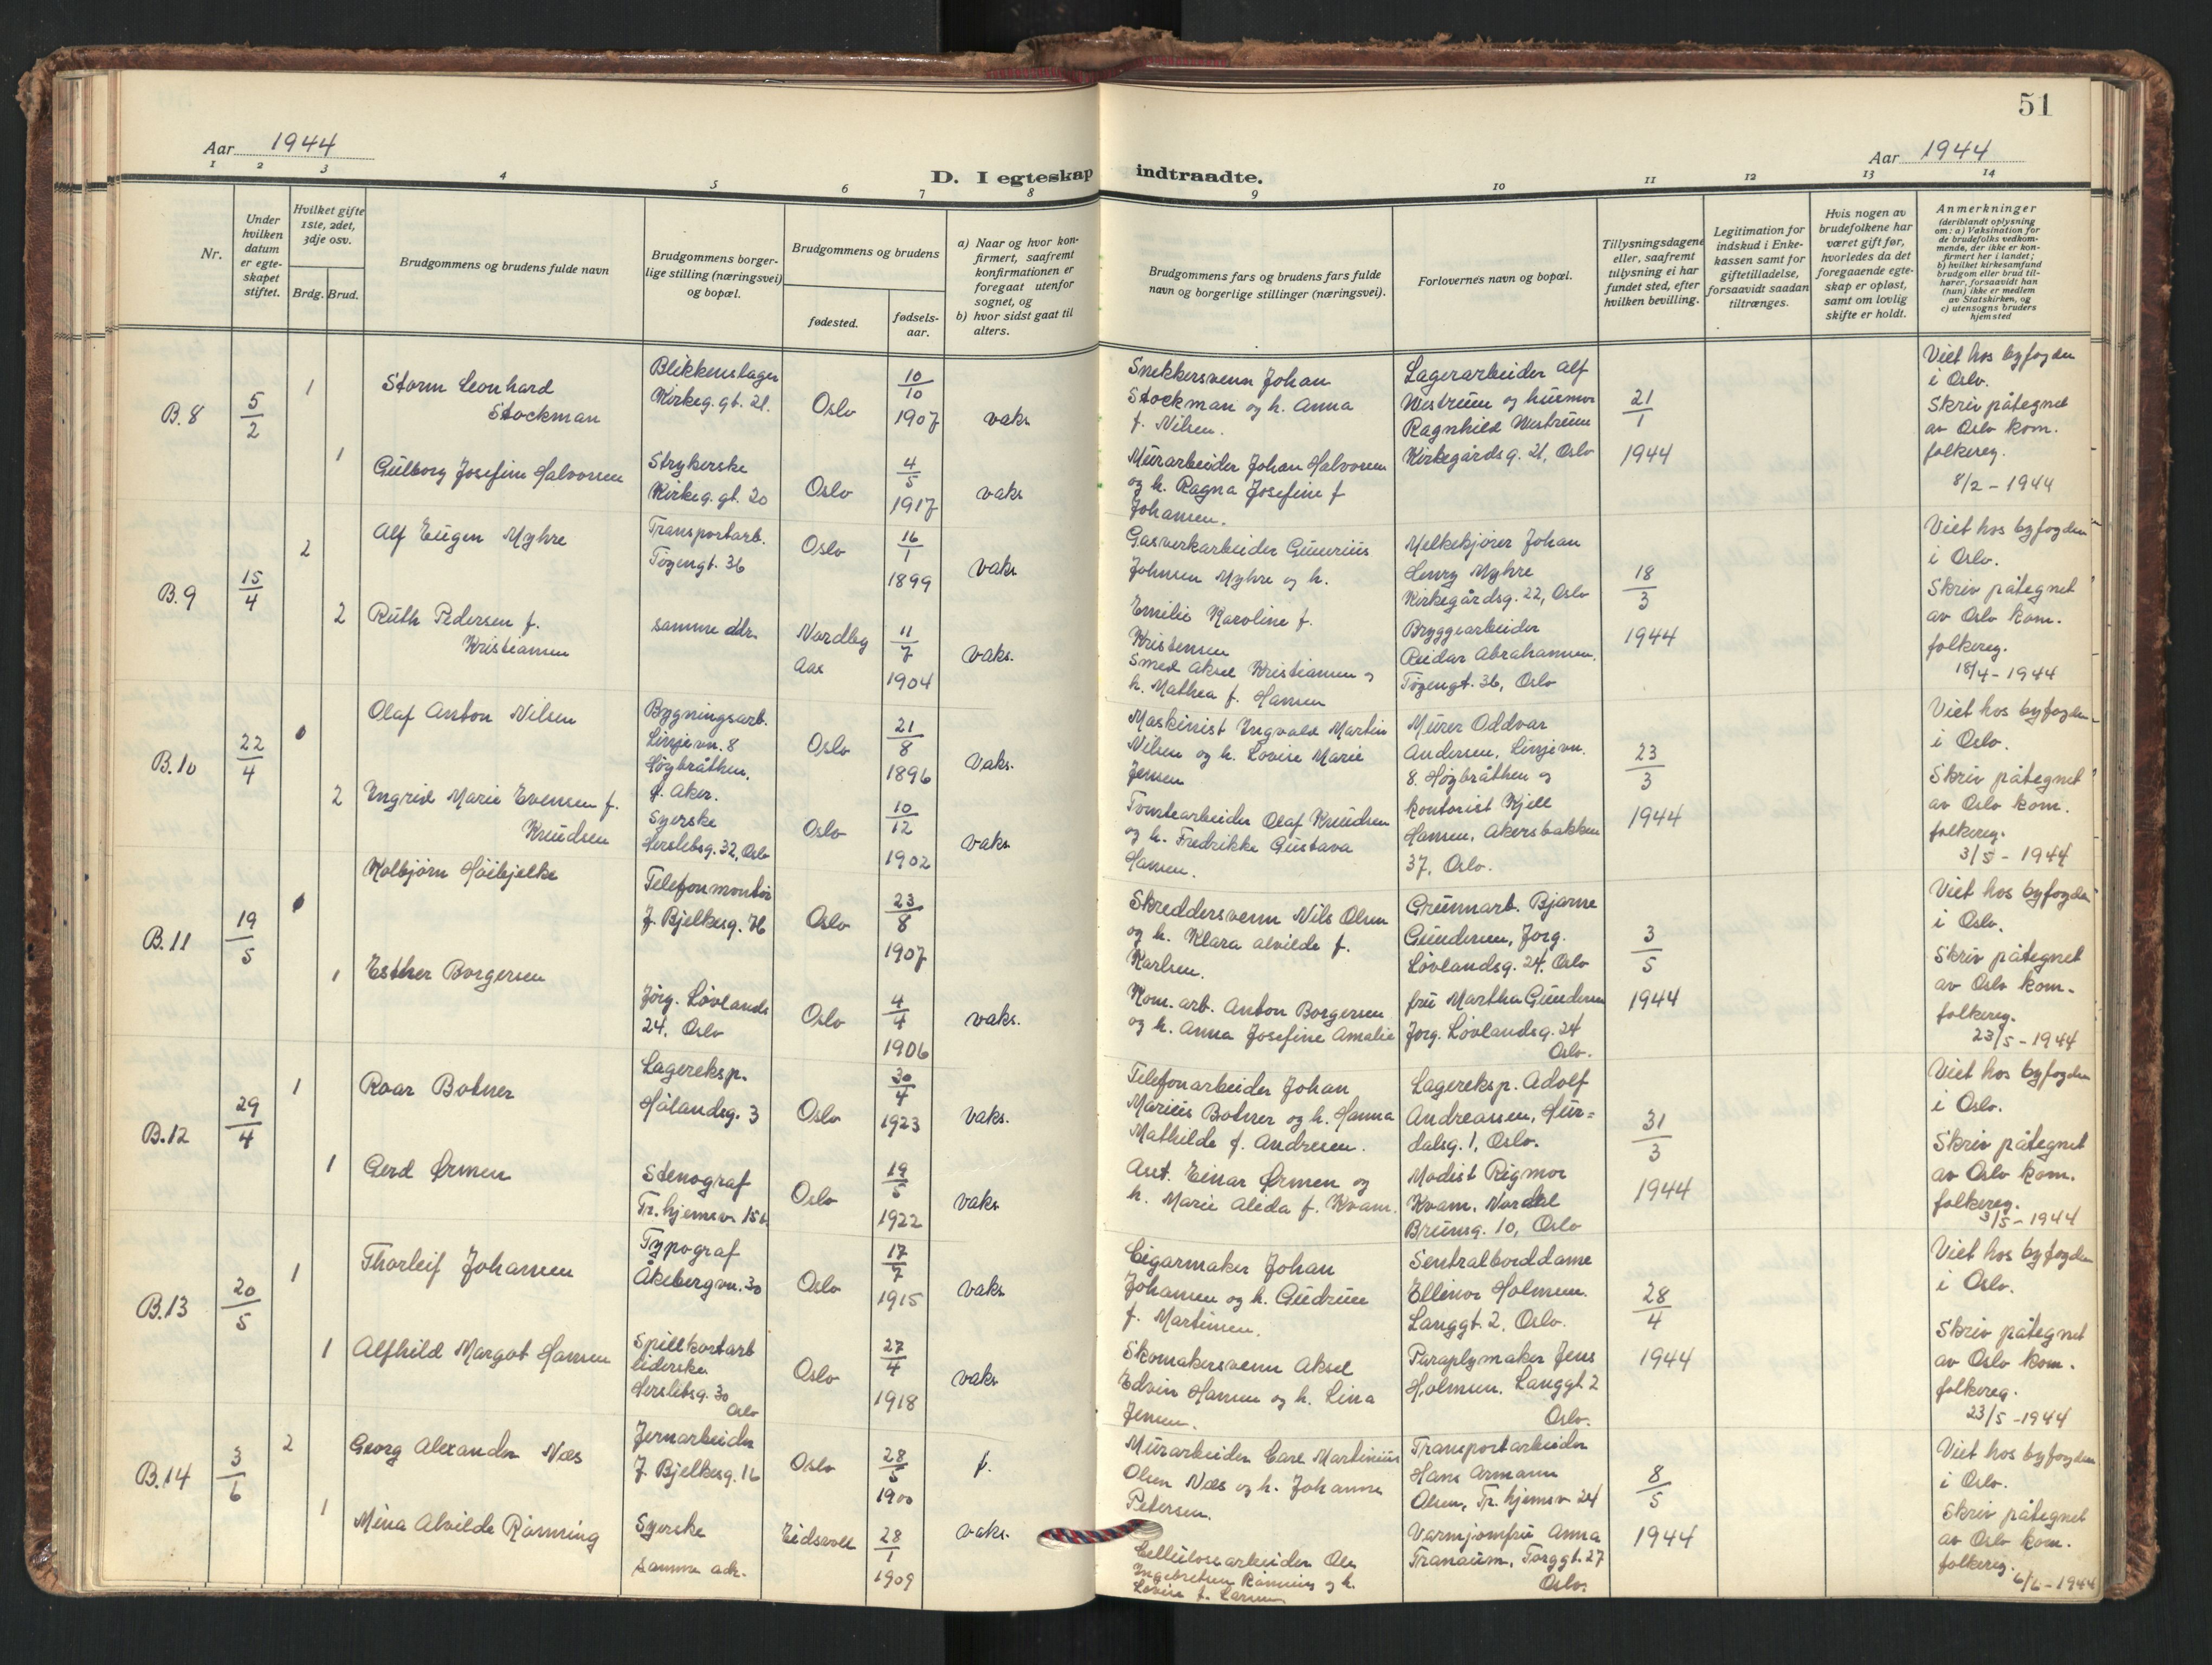 51
Aar 1944
Aar 1944
D. I egteskap indtraadte.
1 2 3 4 5 6 7 8 9 10 11 12 13 14
Nr.
Under
hvilken
datum
er egte-
skapet
stiftet.
Hvilket gifte
1ste, 2det,
3dje osv.
Brdg. Brud.
Brudgommens og brudens fulde navn
Brudgommens borger-
lige stilling (næringsvei)
og bopæl.
Brudgommens og brudens
fødested.
fødsels-
aar.
a) Naar og hvor kon-
firmert, saafremt
konfirmationen er
foregaat utenfor
sognet, og
b) hvor sidst gaat til
alters.
Brudgommens fars og brudens fars fulde
navn og borgerlige stillinger (næringsvei).
Forlovernes navn og bopæl.
Tillysningsdagene
eller, saafremt
tillysning ei har
fundet sted, efter
hvilken bevilling.
Legitimation for
indskud i Enke-
kassen samt for
giftetilladelse,
forsaavidt saadan
tiltrænges.
Hvis nogen av
brudefolkene har
været gift før,
hvorledes da det
foregaaende egte-
skap er opløst,
samt om lovlig
skifte er holdt.
Anmerkninger
(deriblandt oplysning
om: a) Vaksination for
de brudefolks vedkom-
mende, der ikke er kon-
firmert her i landet;
b) hvilket kirkesamfund
brudgom eller brud til-
hører, forsaavidt han
(hun) ikke er medlem
av Statskirken, og
c) utensogns bruders
hjemsted
B.8
5/2
1
Storm Leonhard
Stockman
Blikkenslager
Kirkeg.gt. 21.
Oslo
10/10
1907
vaks
1
Gulborg Josefine Halvorsen
Strykerske
Kirkeg.gt. 20
Oslo
4/5
1917
vaks
Snekkersvenn Johan
Stockman og h. Anna
f. Nilsen.
Murarbeider Johan Halvorsen
og h. Ragna Josefine f
Johansen.
Lagerarbeider Alf
Westrum og husmor
Ragnhild Westrum
Kirkegårdsg. 21, Oslo
21/1
1944
Viet hos byfogden
i Oslo.
Skriv påtegnet
av Oslo kom.
folkereg.
8/2 - 1944
B.9
15/4
2
Alf Eugen Myhre
Transportarb.
Tøyengt. 36
Oslo
16/1
1899
vaks
2
Ruth Pedersen f.
Kristiansen
samme adr.
Nordby
Aas
11/7
1904
vaks.
Gasverkarbeider Gunerius
Johnsen Myhre og h.
Emilie Karoline f.
Kristensen
Smed Aksel Kristiansen og
h. Mathea f. Hansen
Melkekjører Johan
Henry Myhre
Kirkegårdsg. 22, Oslo
Bryggearbeider
Reidar Abrahamsen.
Tøyengt. 36, Oslo
18/3
1944
Viet hos byfogden
i Oslo.
Skriv påtegnet
av Oslo kom.
folkereg.
18/4 - 1944
B.10
22/4
Olaf Anton Nilsen
Bygningsarb.
Linjevn. 8
Høybråthen.
Ø. Aker.
Oslo
21/8
1896
vaks.
2
Ingrid Marie Evensen f.
Knudsen
Syerske
Herslebsg. 32, Oslo
Oslo
10/12
1902
vaks
Maskinist Ingvald Martin
Nilsen og h. Lovise Marie
Jensen
Tomtearbeider Olaf Knudsen
og h. Fredrikke Gustava
Hansen.
Murer Oddvar
Andersen, Linjevn.
8. Høybråthen og
kontorist Kjell
Hansen, Akersbakken
37, Oslo.
23/3
1944
Viet hos byfogden
i Oslo.
Skriv påtegnet
av Oslo kom.
folkereg.
3/5 - 1944
B.11
19/5
Kolbjørn Høibjelke
Telefonmontør
J. Bjelkesg. 46
Oslo
23/8
1907
1
Esther Borgersen
Jørg. Løvlands
24, Oslo
Oslo
4/4
1906
vaks.
Skreddersvenn Nils Olsen
og h. Klara Alvilde f.
Karlsen.
Kom. arb. Anton Borgersen
og h. Anna Josefine Amalie
Grunnarb. Bjarne
Gundersen, Jørg.
Løvlandsg. 24, Oslo
fru Martha Gundersen
Jørg. Løvlandsg. 24
Oslo.
3/5
1944
Viet hos byfogden
i Oslo.
Skriv påtegnet
av Oslo kom.
folkereg.
23/5 - 1944
B.12
29/4
1
Roar Botner
Lagereksp.
Hålandsg. 3
Oslo
30/4
1923
vaks.
1
Gerd Ørmen
Stenograf
Tr.hjemsv. 15b
Oslo
19/5
1922
vaks
Telefonarbeider Johan
Marius Botner og h. Hanna
Mathilde f. Andresen.
Ant. Einar Ørmen og
h. Marie Aleda f. Kvam.
Lagereksp. Adolf
Andreassen, Hur=
dalsg. 1, Oslo.
Modist Rigmor
Kvam, Nordal
Brunsg. 10, Oslo
31/3
1944
Viet hos byfogden
i Oslo.
Skriv påtegnet
av Oslo kom.
folkereg.
3/5 - 1944
B.13
20/5
1
Thorleif Johansen
Typograf
Åkebergvn. 30
Oslo
17/7
1915
vaks
1
Alfhild Margot Hansen
Spillkortarb
eiderske
Herslebsg. 30
Oslo
Oslo
27/4
1918
vaks
Cigarmaker Johan
Johansen og h. Gudrun
f. Martinsen.
Skomakersvenn Aksel
Edvin Hansen og h. Lina
Jensen.
Sentralborddame
Ellinor Holmsen.
Langgt. 2, Oslo.
Paraplymaker Jens
Holmsen. Langgt. 2
Oslo.
28/4
1944
Viet hos byfogden
i Oslo.
Skriv påtegnet
av Oslo kom.
folkereg.
23/5 - 1944
B.14
3/6
2
Georg Alexander Næs
Jernarbeider
J. Bjelkesg. 16
Oslo
28/5
1900
f.
1
Mina Alvilde Rønning
Syerske
samme adr.
Eidsvoll
28/1
1909
vaks.
Murarbeider Carl Martinius
Olsen Næs og h. Johanne
Petersen.
Cellulosearbeider Ole
Ingebretsen Rønning og h.
Lovise f. Larsen
Transportarbeider
Hans Armann
Olsen, Tr. hjemsv 24
Varmjomfru Anna
Tranaum, Torggt. 27
Oslo.
8/5
1944
Viet hos byfogden
i Oslo.
Skriv påtegnet
av Oslo kom.
folkereg.
6/6 - 1944